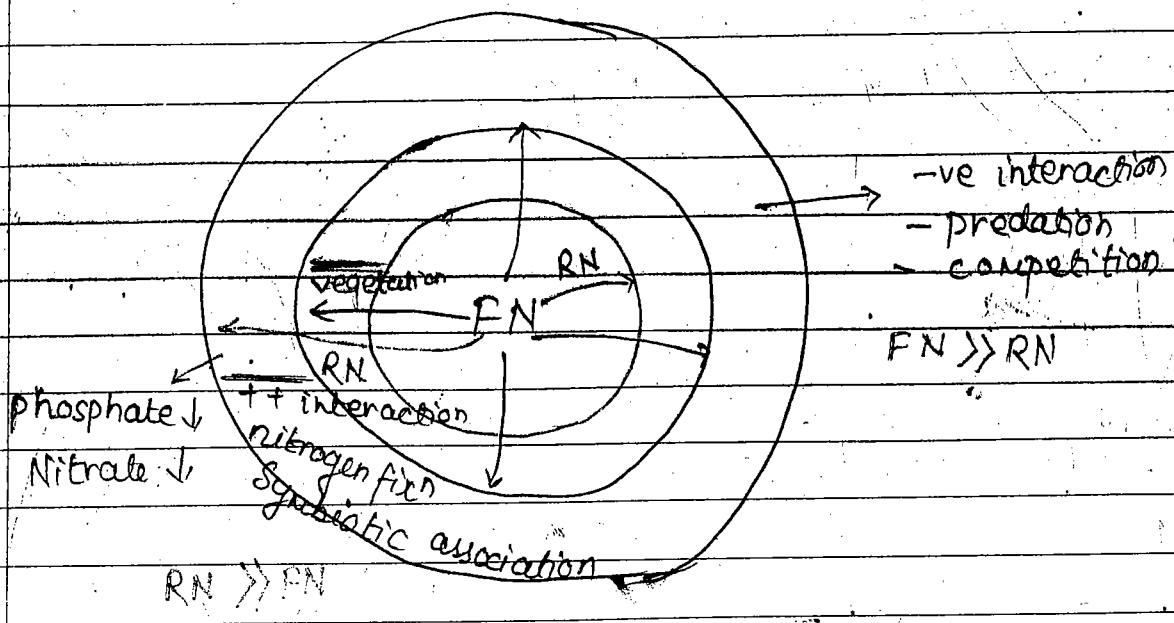 -ve interaction
- predation
- competition
FN >> RN
RN
vegetation
FN
RN
++ interaction
nitrogen fixn
Symbiotic association
phosphate ↓
Nitrate ↓
RN >> FN